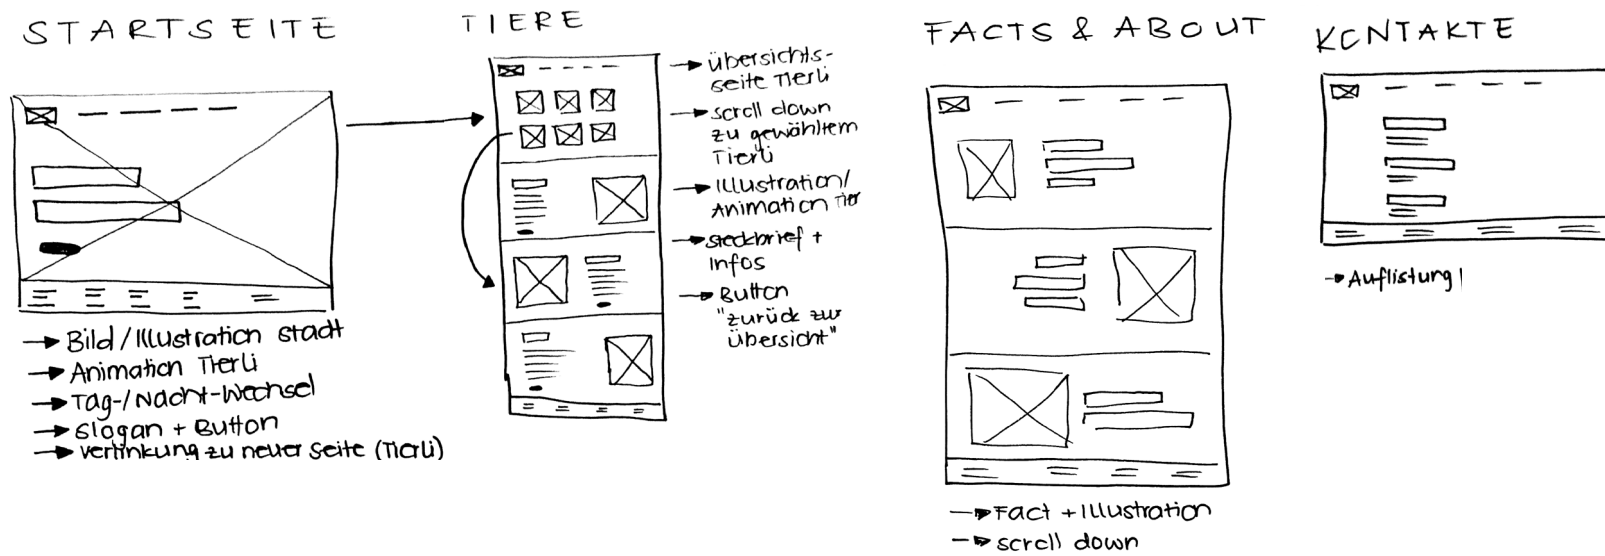 STARTSEITE
→ Bild/Illustration Stadt
→ Animation Tierli
→ Tag-/Nacht-Wechsel
→ Slogan + Button
→ Verlinkung zu neuer Seite (Tierli)
TIERE
→ Übersichts-
seite Tierli
→ scroll down
zu gewähltem
Tierli
→ Illustration/
Animation Tier
→ Steckbrief +
Infos
→ Button
"zurück zur
Übersicht"
FACTS & ABOUT
→ Fact + Illustration
→ scroll down
KONTAKTE
→ Auflistung